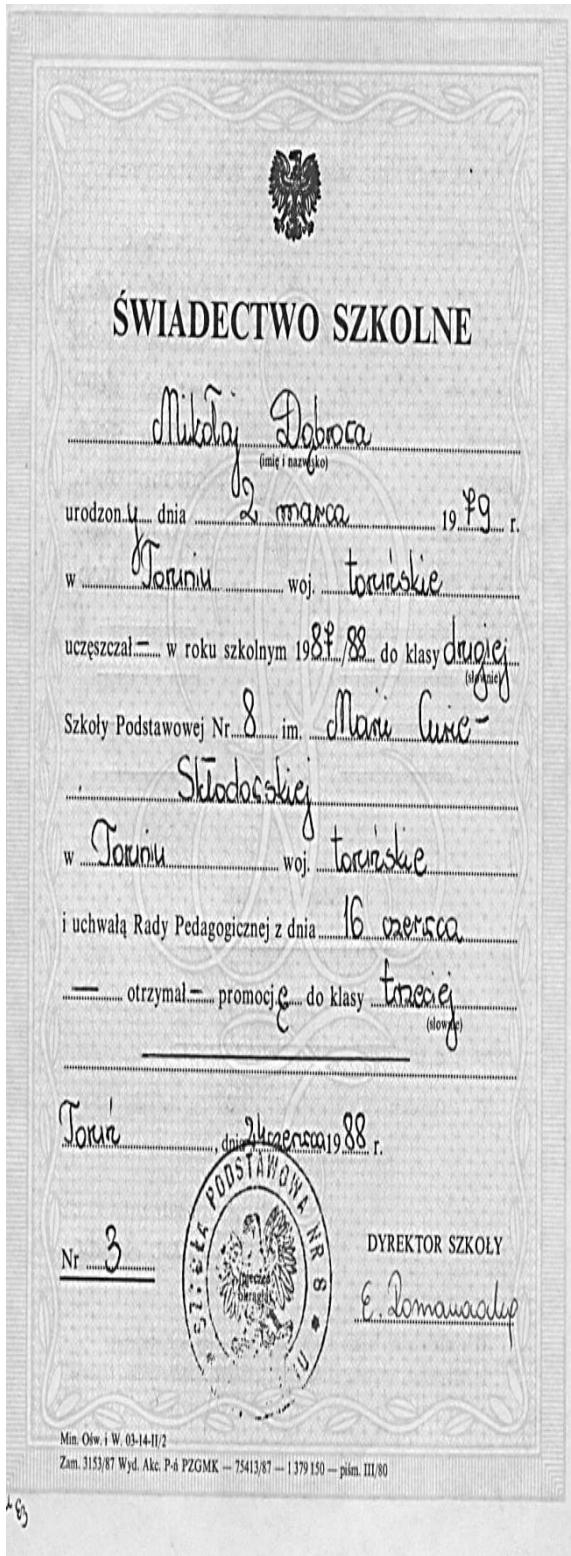 ŚWIADECTWO SZKOLNE
Mikołaj Dąbroca
(imię i nazwisko)
urodzony dnia 2 marca 1979 r.
w Toruniu woj. toruńskie
uczęszczał — w roku szkolnym 1987/88 do klasy drugiej
(słownie)
Szkoły Podstawowej Nr 8 im. Marii Curie-
Skłodowskiej
w Toruniu woj. toruńskie
i uchwałą Rady Pedagogicznej z dnia 16 czerwca
— otrzymał — promocję do klasy trzeciej
(słownie)
Toruń, dnia 24 czerwca 1988 r.
SZKOŁA PODSTAWOWA NR 8
Nr 3
DYREKTOR SZKOŁY
E.
Min. Ośw. i W. 03-14-II/2
Zam. 3153/87 Wyd. Akc. P-ń PZGMK — 75413/87 — 1 379 150 — piśm. III/80